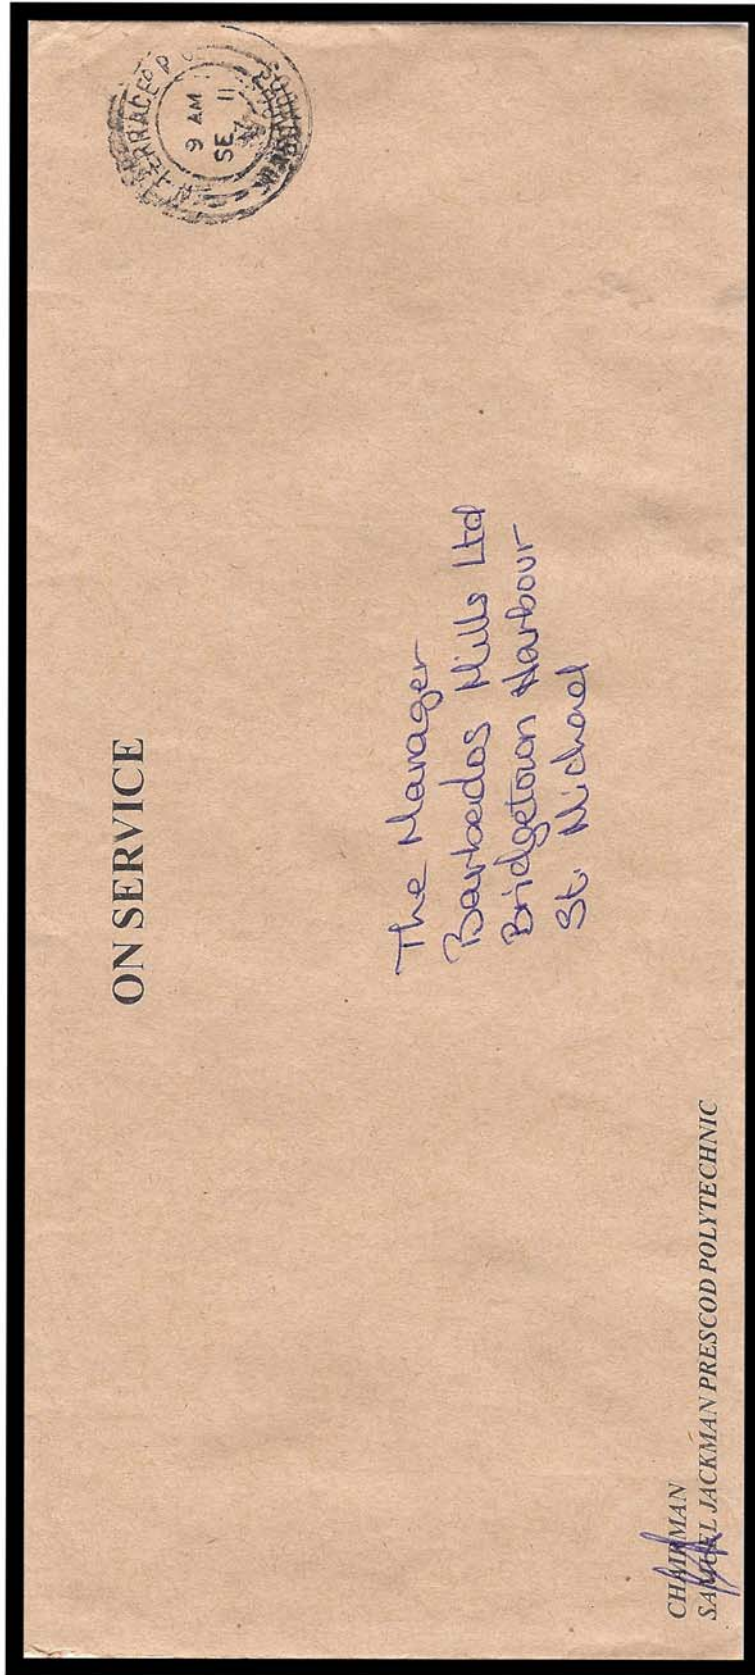 ON SERVICE
TERRACE P O
9 AM
SE 11
The Manager
Barbados Mills Ltd
Bridgetown Harbour
St. Michael
CHAIRMAN
SAMUEL JACKMAN PRESCOD POLYTECHNIC